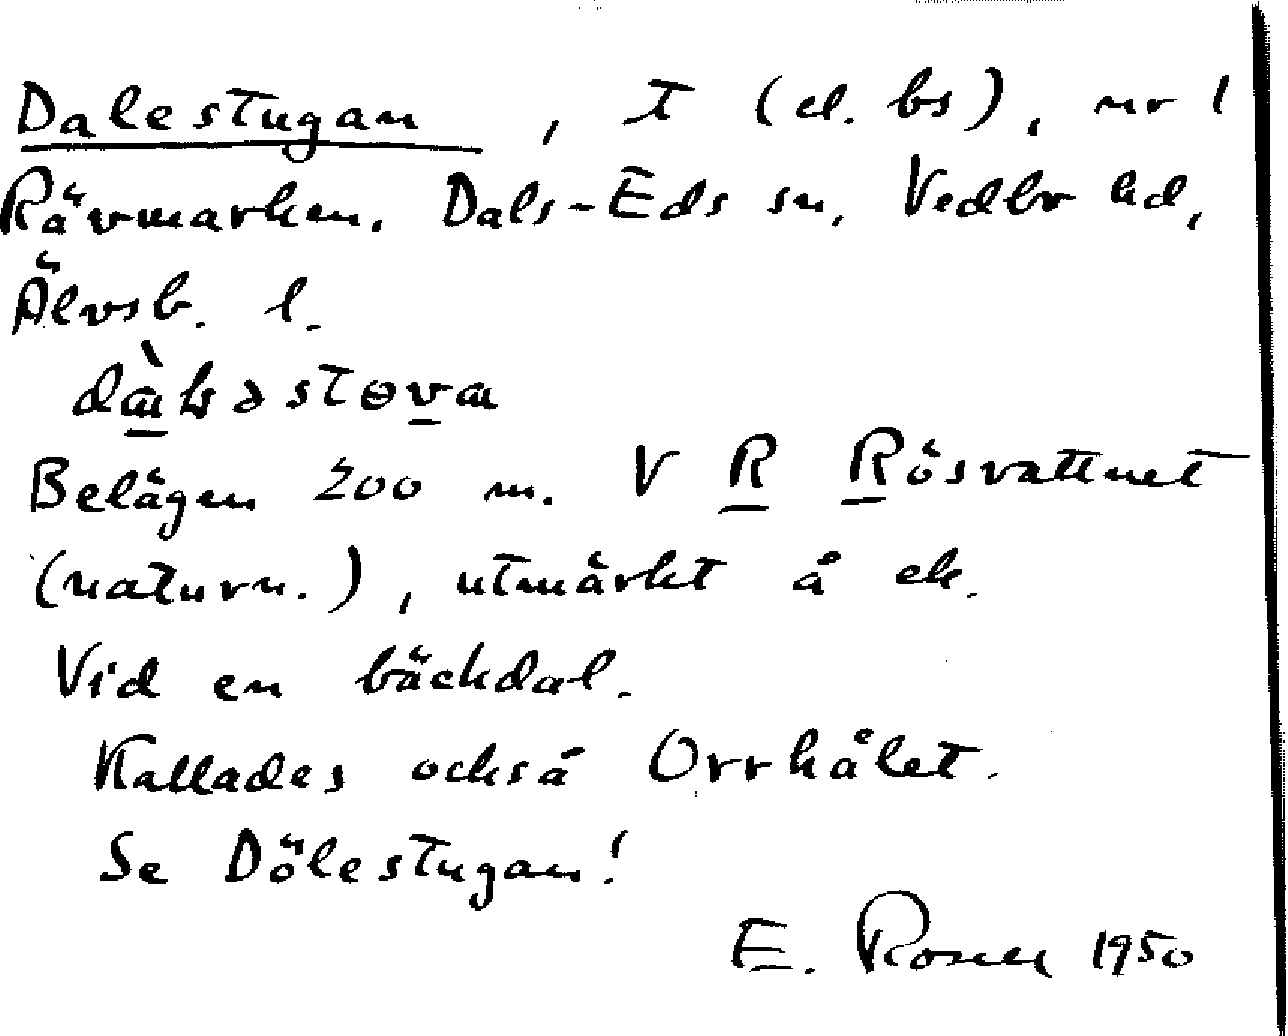 Dalestugan, t (el. bs), nr 1
Rävmarken. Dals-Eds sn, Vedbr hd,
Älvsb. l.
Belägen 200 m. V R Rösvattnet
(naturn.), utmärkt å ek.
Vid en bäckdal.
Kallades också Orrhålet.
Se Dölestugan!
E. Rosell 1950